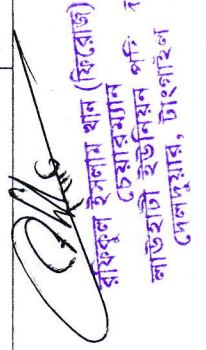 রফিকুল ইসলাম খান (ফিরোজ)
চেয়ারম্যান
লাউহাটী ইউনিয়ন পরি
দেলদুয়ার, টাংগাইল